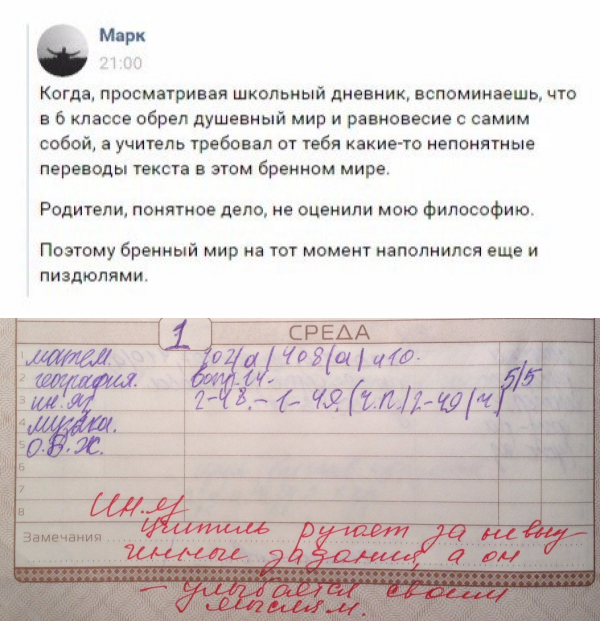 Марк
21:00
Когда, просматривая школьный дневник, вспоминаешь, что
в 6 классе обрел душевный мир и равновесие с самим
собой, а учитель требовал от тебя какие-то непонятные
переводы текста в этом бренном мире.
Родители, понятное дело, не оценили мою философию.
Поэтому бренный мир на тот момент наполнился еще и
пиздюлями.
1
СРЕДА
1 матем.
2 география.
3 ин.яз 2-48.-1-49.(ч.п.)2-49(ч) 5/5
4 музыка.
5 О.Б.Ж.
6
7
8
Ин.яз
Замечания Учитель ругает за невыу
ченные задания, а он
- улыбается своим
мыслям.